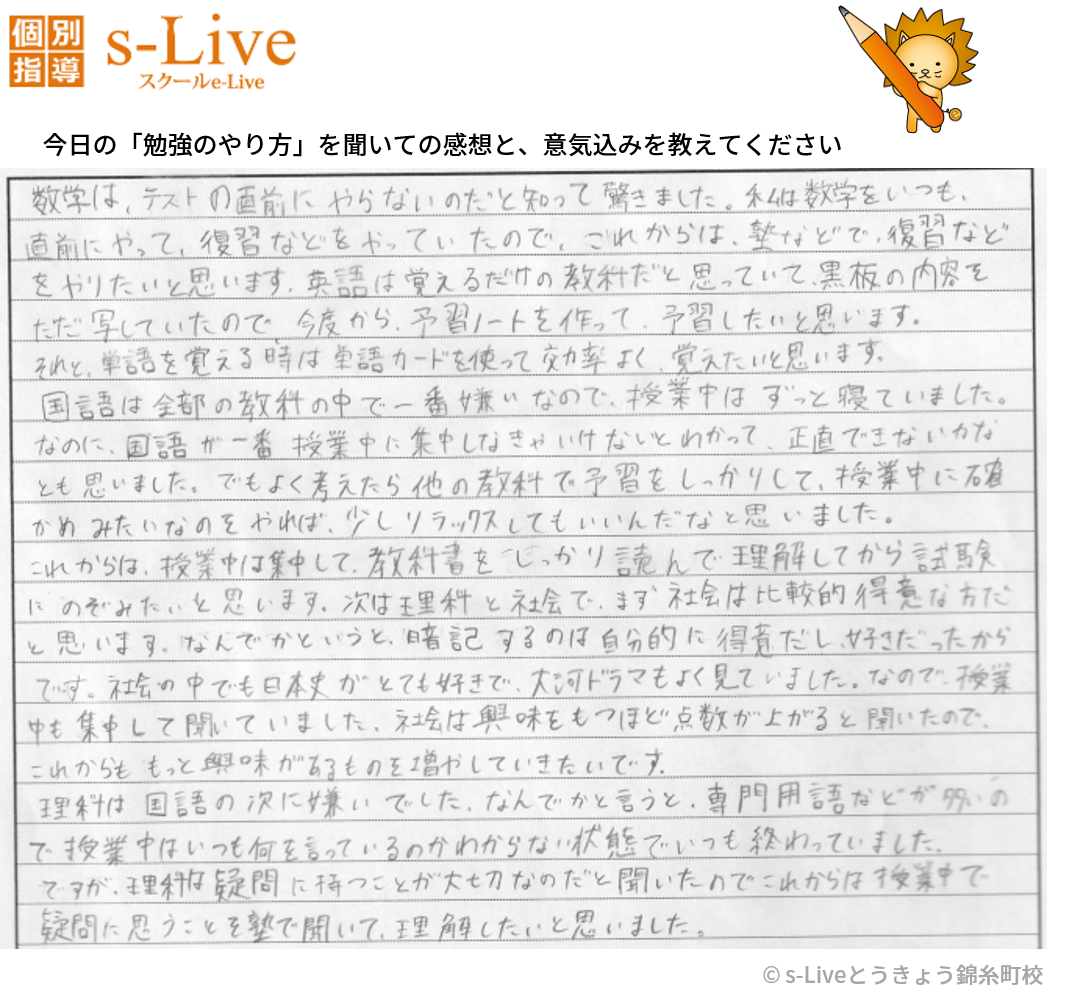 個別
指導
s-Live
スクールe-Live
今日の「勉強のやり方」を聞いての感想と、意気込みを教えてください
数学は、テストの直前にやらないのだと知って驚きました。私は数学をいつも、
直前にやって、復習などをやっていたので、これからは、塾などで、復習など
をやりたいと思います。英語は覚えるだけの教科だと思っていて、黒板の内容を
ただ写していたので、今度から、予習ノートを作って、予習したいと思います。
それと、単語を覚える時は単語カードを使って効率よく、覚えたいと思います。
国語は全部の教科の中で一番嫌いなので、授業中はずっと寝ていました。
なのに、国語が一番授業中に集中しなきゃいけないとわかって、正直できないかな
とも思いました。でもよく考えたら他の教科で予習をしっかりして、授業中に確
かめみたいなのをやれば、少しリラックスしてもいいんだなと思いました。
これからは、授業中は集中して、教科書をしっかり読んで理解してから試験
にのぞみたいと思います。次は理科と社会で、まず社会は比較的得意な方だ
と思います。なんでかというと、暗記するのは自分的に得意だし、好きだったから
です。社会の中でも日本史がとても好きで、大河ドラマもよく見ていました。なので、授業
中も集中して聞いていました、社会は興味をもつほど点数が上がると聞いたので、
これからももっと興味があるものを増やしていきたいです。
理科は国語の次に嫌いでした。なんでかと言うと、専門用語などが多いの
で授業中はいつも何を言っているのかわからない状態でいつも終わっていました。
ですが、理科は疑問に持つことが大切なのだと聞いたのでこれからは授業中で
疑問に思うことを塾で聞いて、理解したいと思いました。
© s-Liveとうきょう錦糸町校